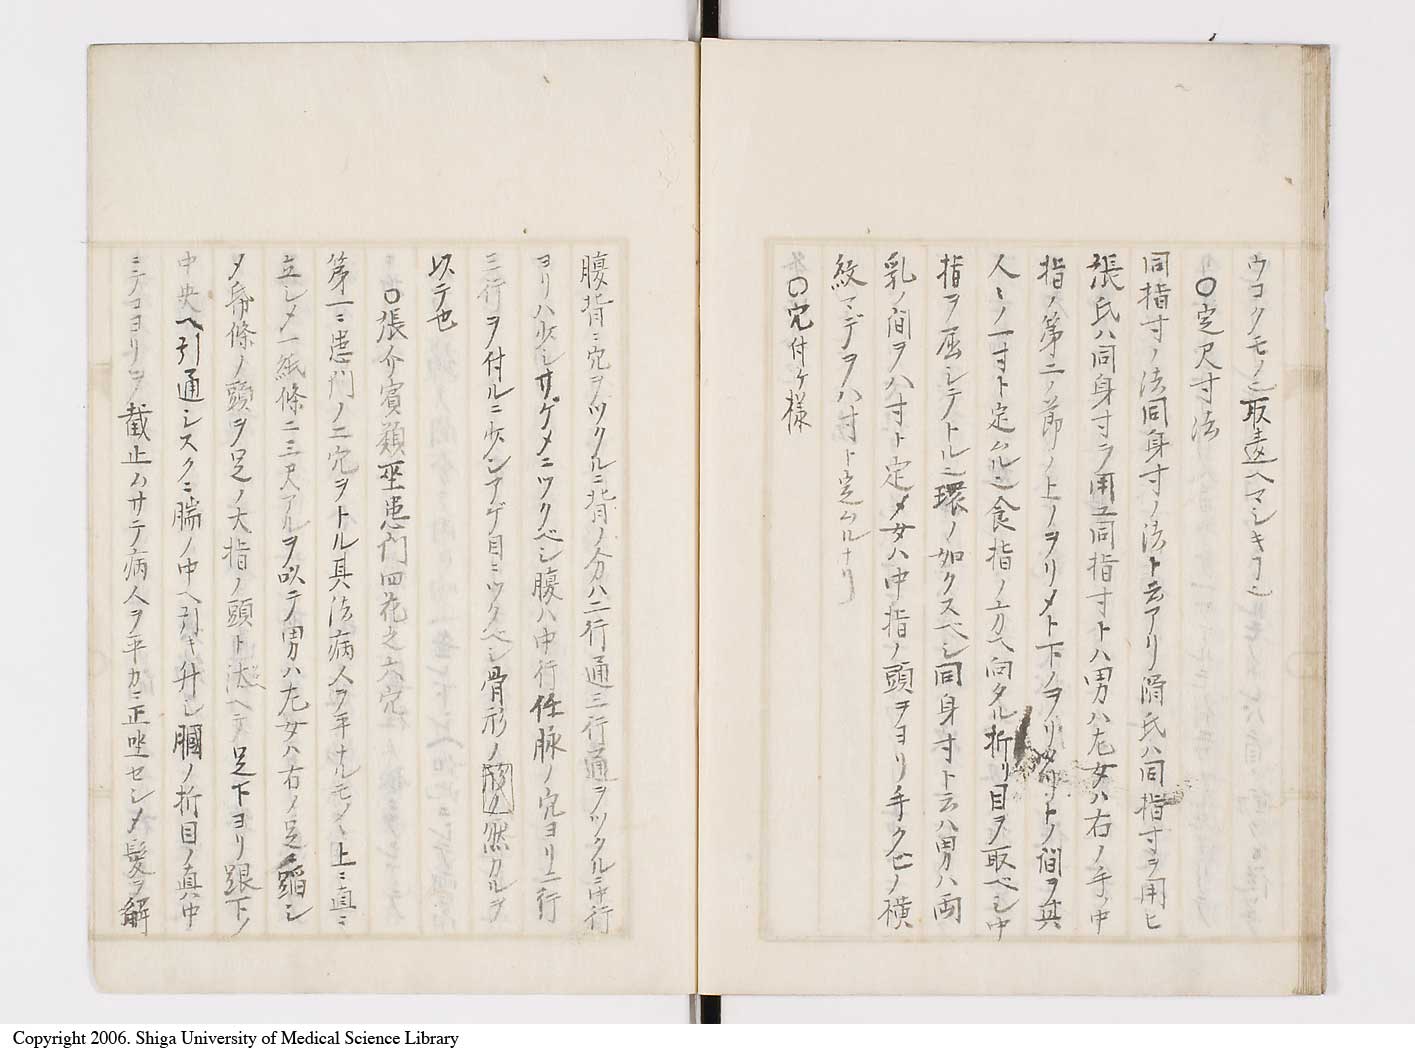 ウコクモノニ取違ヘマシキコ
〇定尺寸法
同指寸ノ法同身寸ノ法ト云アリ滑氏ハ同指寸ヲ用ヒ
張氏ハ同身寸ヲ用ユ同指寸トハ男ハ左女ハ右ノ手ノ中
指ノ第二ノ節ノ上ノヲリメト下ノヲリメトノ間ヲ其
人々ノ一寸ト定ムル也食指ノ方ヘ向タル折リ目ヲ取ベシ中
指ヲ屈シテトル也環ノ如クスベシ同身寸ト云ハ男ハ両
乳ノ間ヲ八寸ト定メ女ハ中指ノ頭ヲヨリ手クビノ横
紋マデヲ八寸ト定ムルナリ
〇穴付ケ様
腹背ニ穴ヲツクルニ背ノ分ハ二行通三行通ヲツクルニ中行
ヨリハ少シサゲメニツクベシ腹ハ中行任脉ノ穴ヨリ二行
三行ヲ付ルニ少シアゲ目ニツクベシ骨形ノ然カルヲ
以テ也
〇張介賓類巫患門四花之六穴
第一ニ患門ノ二穴ヲトル其法病人ヲ平ナルモノヽ上ニ真ニ
立シメ一紙條二三尺アルヲ以テ男ハ左女ハ右ノ足ニ蹈シ
メ紙條ノ頭ヲ足ノ大指ノ頭ト ヘテ足下ヨリ跟下ノ
中央ヘ引通シスクニ腨ノ中ヘ引キ升シ膕ノ折目ノ真ハ中
ニテコヨリヲ截止ムサテ病人ヲ平カニ正坐セシメ髪ヲ解